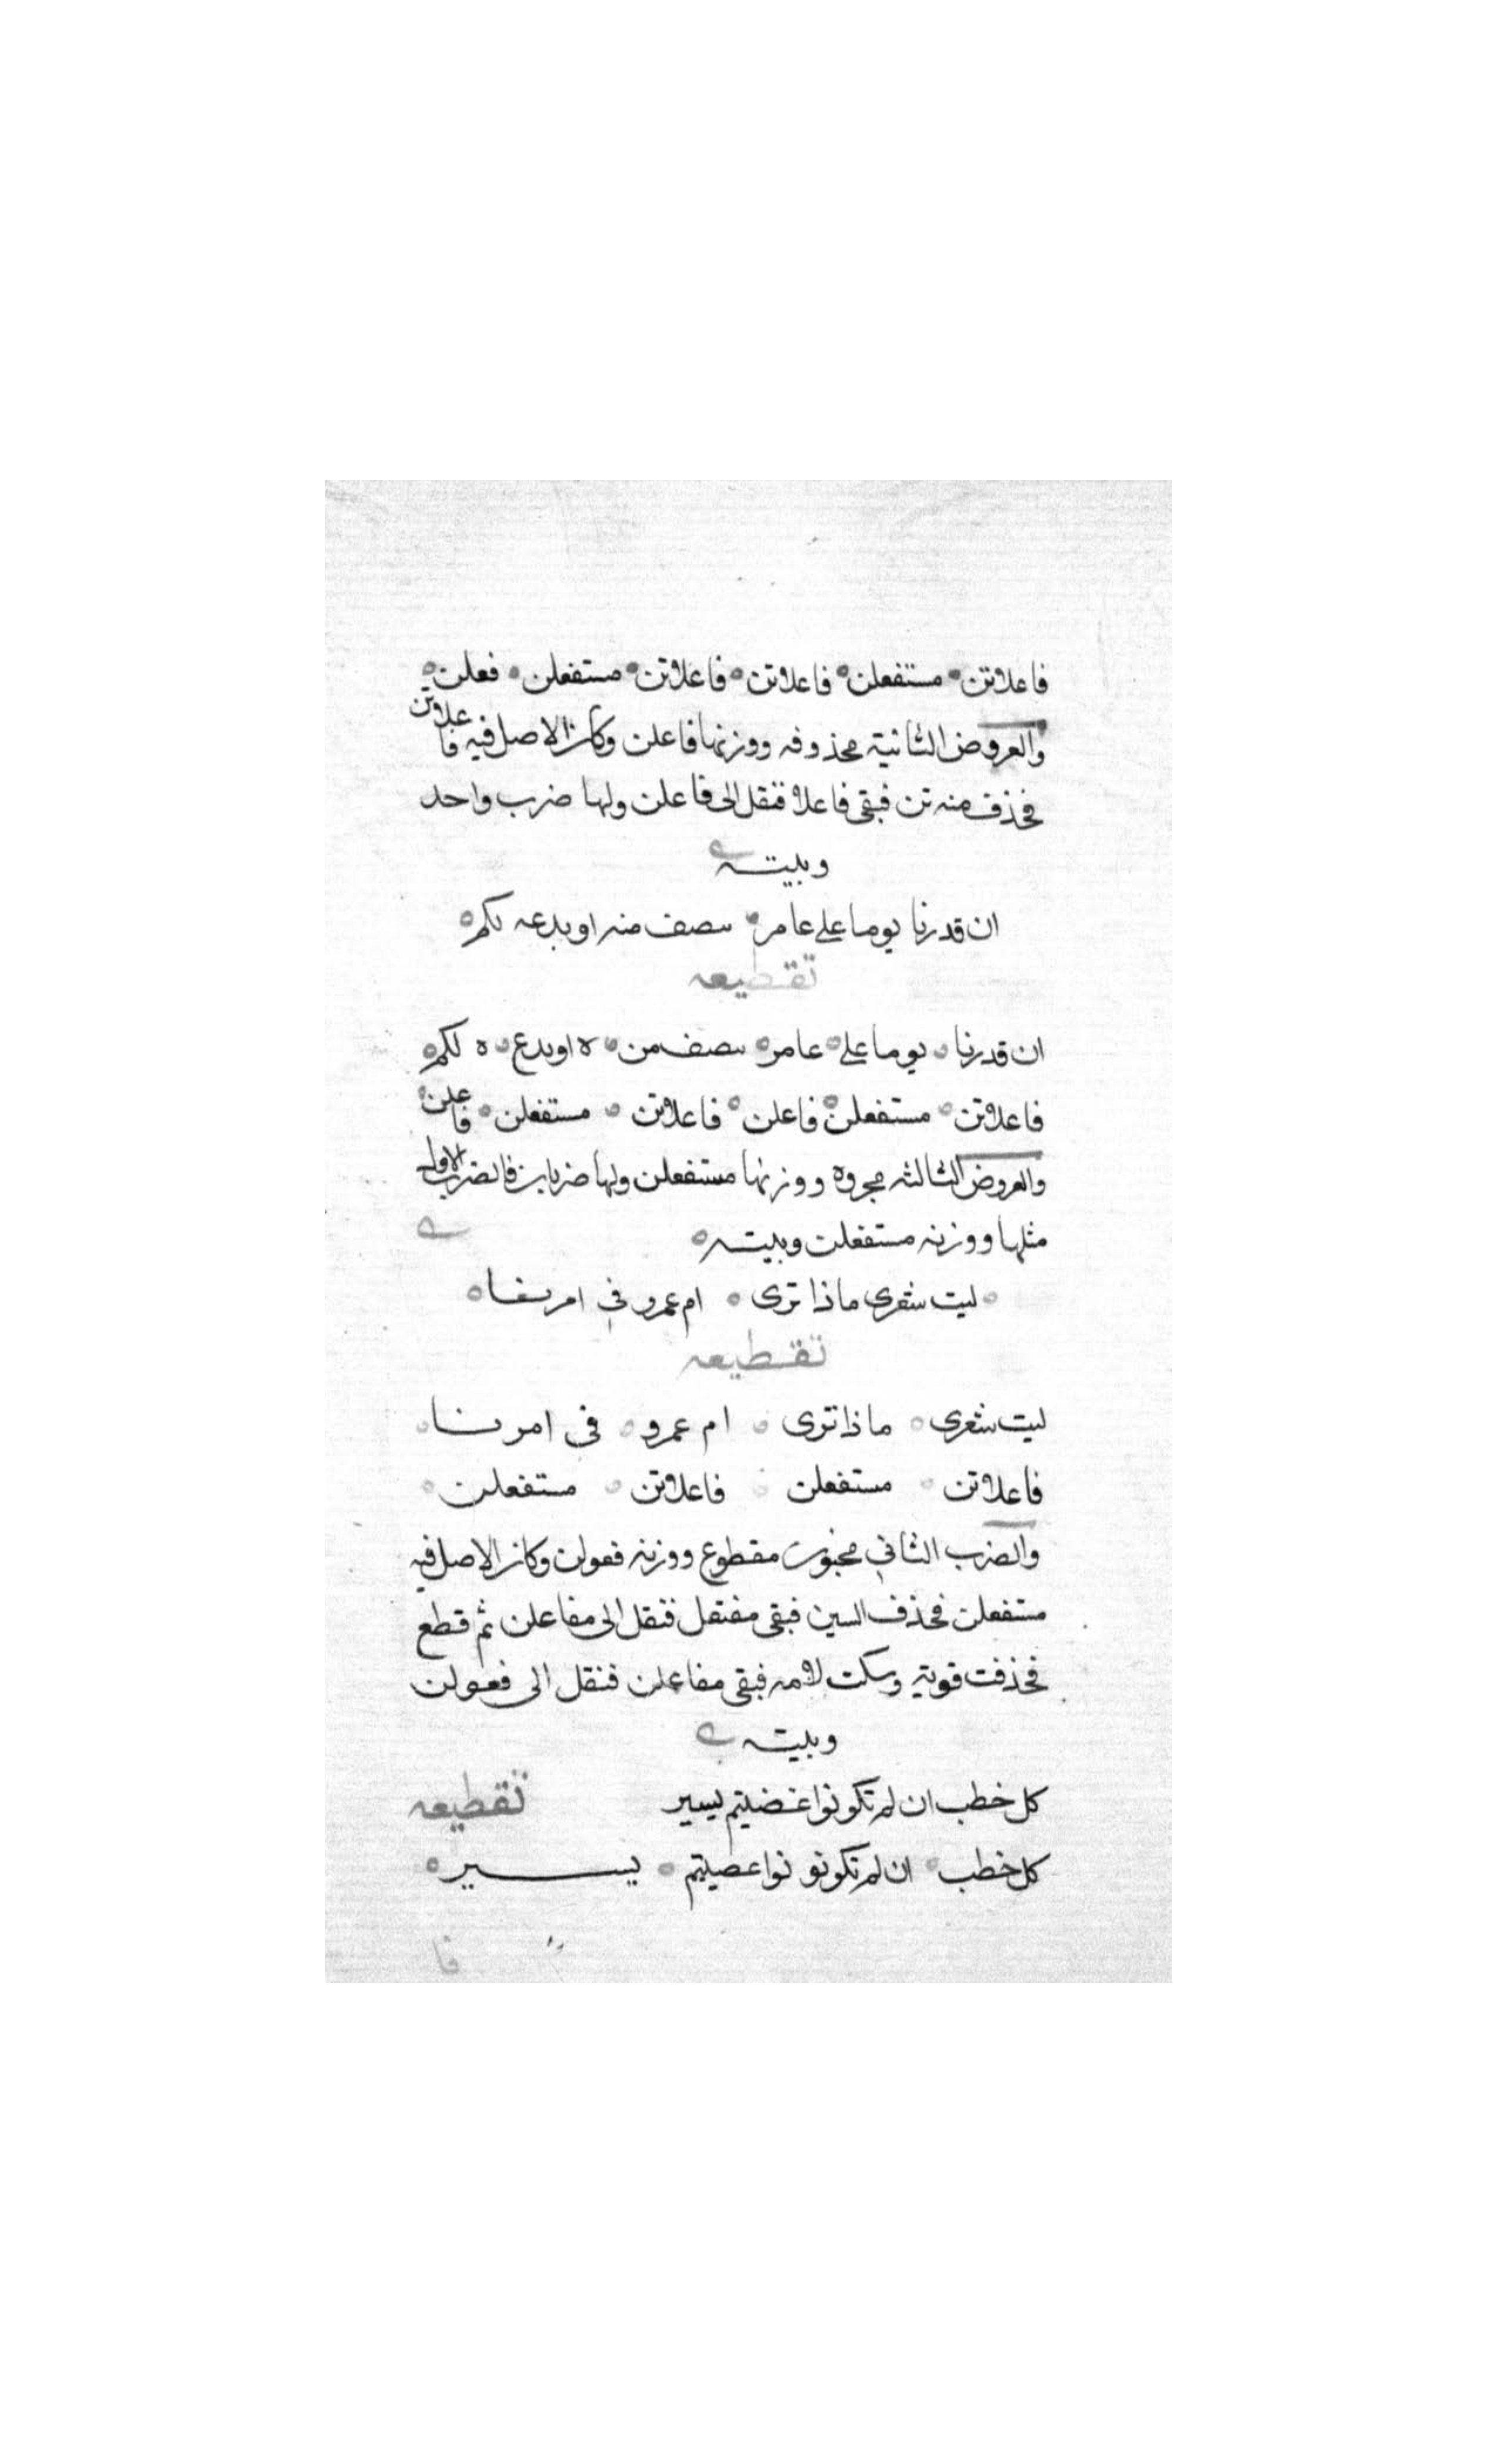 فاعلاتن ه مستفعلن ه فاعلاتن ه فاعلاتن ه مستفعلن ه فعلن ه
والعروض الثانية محذوفه ووزنها فاعلن وكان الاصل فيه فاعلاتن
فحذف منه تن فبقى فاعلا فنقل الى فاعلن ولها ضرب واحد
وبيته
ان قدرنا يوما على عامر ه سصف منه او بدعه لكم ه
تقطيعه
ان قدرنا ه يوما على ه عامر ه سصف من ه ه او بدع ه ه لكم ه
فاعلاتن ه مستفعلن ه فاعلن ه فاعلاتن ه مستفعلن ه فاعلن ه
والعروض الثالثه مجروه ووزنها مستفعلن ولها ضربان فالضرب الاول
مثلها ووزنه مستفعلن وبيته ه
ه ليت شعرى ماذا ترى ه ام عمرو في امرنا ه
تقطيعه
ليت شعرى ه ماذا ترى ه ام عمرو ه فى امرنا ه
فاعلاتن ه مستفعلن ه فاعلاتن ه مستفعلن ه
والضرب الثاني مخبون مقطوع ووزنه فعولن وكان الاصل فيه
مستفعلن فحذف السين فبقى مفتعل فنقل الى مفاعلن ثم قطع
فحذفت قويته وسكت لامه فبقى مفاعلن فنقل الى فعولن
وبيته
كل خطب ان لم تكونوا غضبتم يسير تقطيعه
كل خطب ه ان لم تكونو نوا عصبتم ه يسير ه
فا